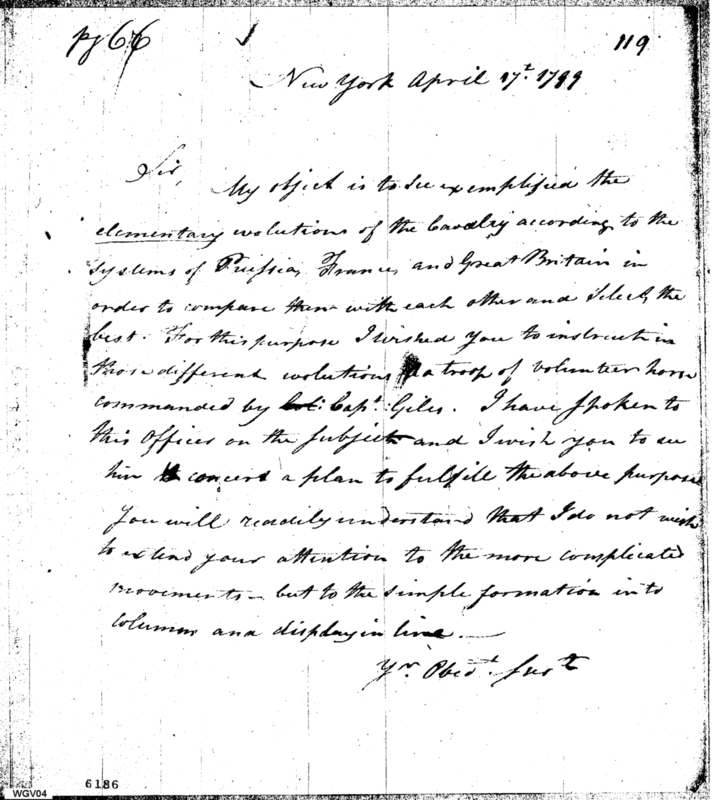 pg 66
119
New York April 17t. 1799
Sir,
My object is to see exemplified the
elementary evolutions of the Cavalry according to the
systems of Prussia, France, and Great Britain in
order to compare them with each other and select the
best. For this purpose I wished you to instruct in
those different evolutions a troop of volunteer horse
commanded by Col: Capt. Giles. I have spoken to
this Officer on the subject and I wish you to see
him & concert a plan to fulfill the above purpose
You will readily understand that I do not wish
to extend your attention to the more complicated
movements - but to the simple formation into
Columns and display in line. —
Yr. Obedt. Servt
6186
WGV04